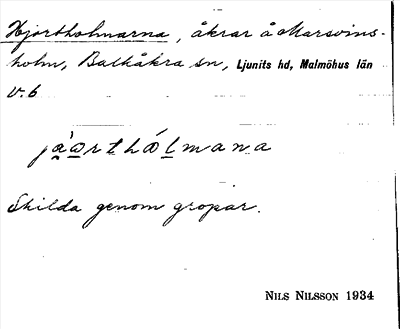 Hjortholmarna, åkrar å Marsvins-
holm, Balkåkra sn, Ljunits hd, Malmöhus län
V. 6
Skilda genom gropar.
NILS NILSSON 1934